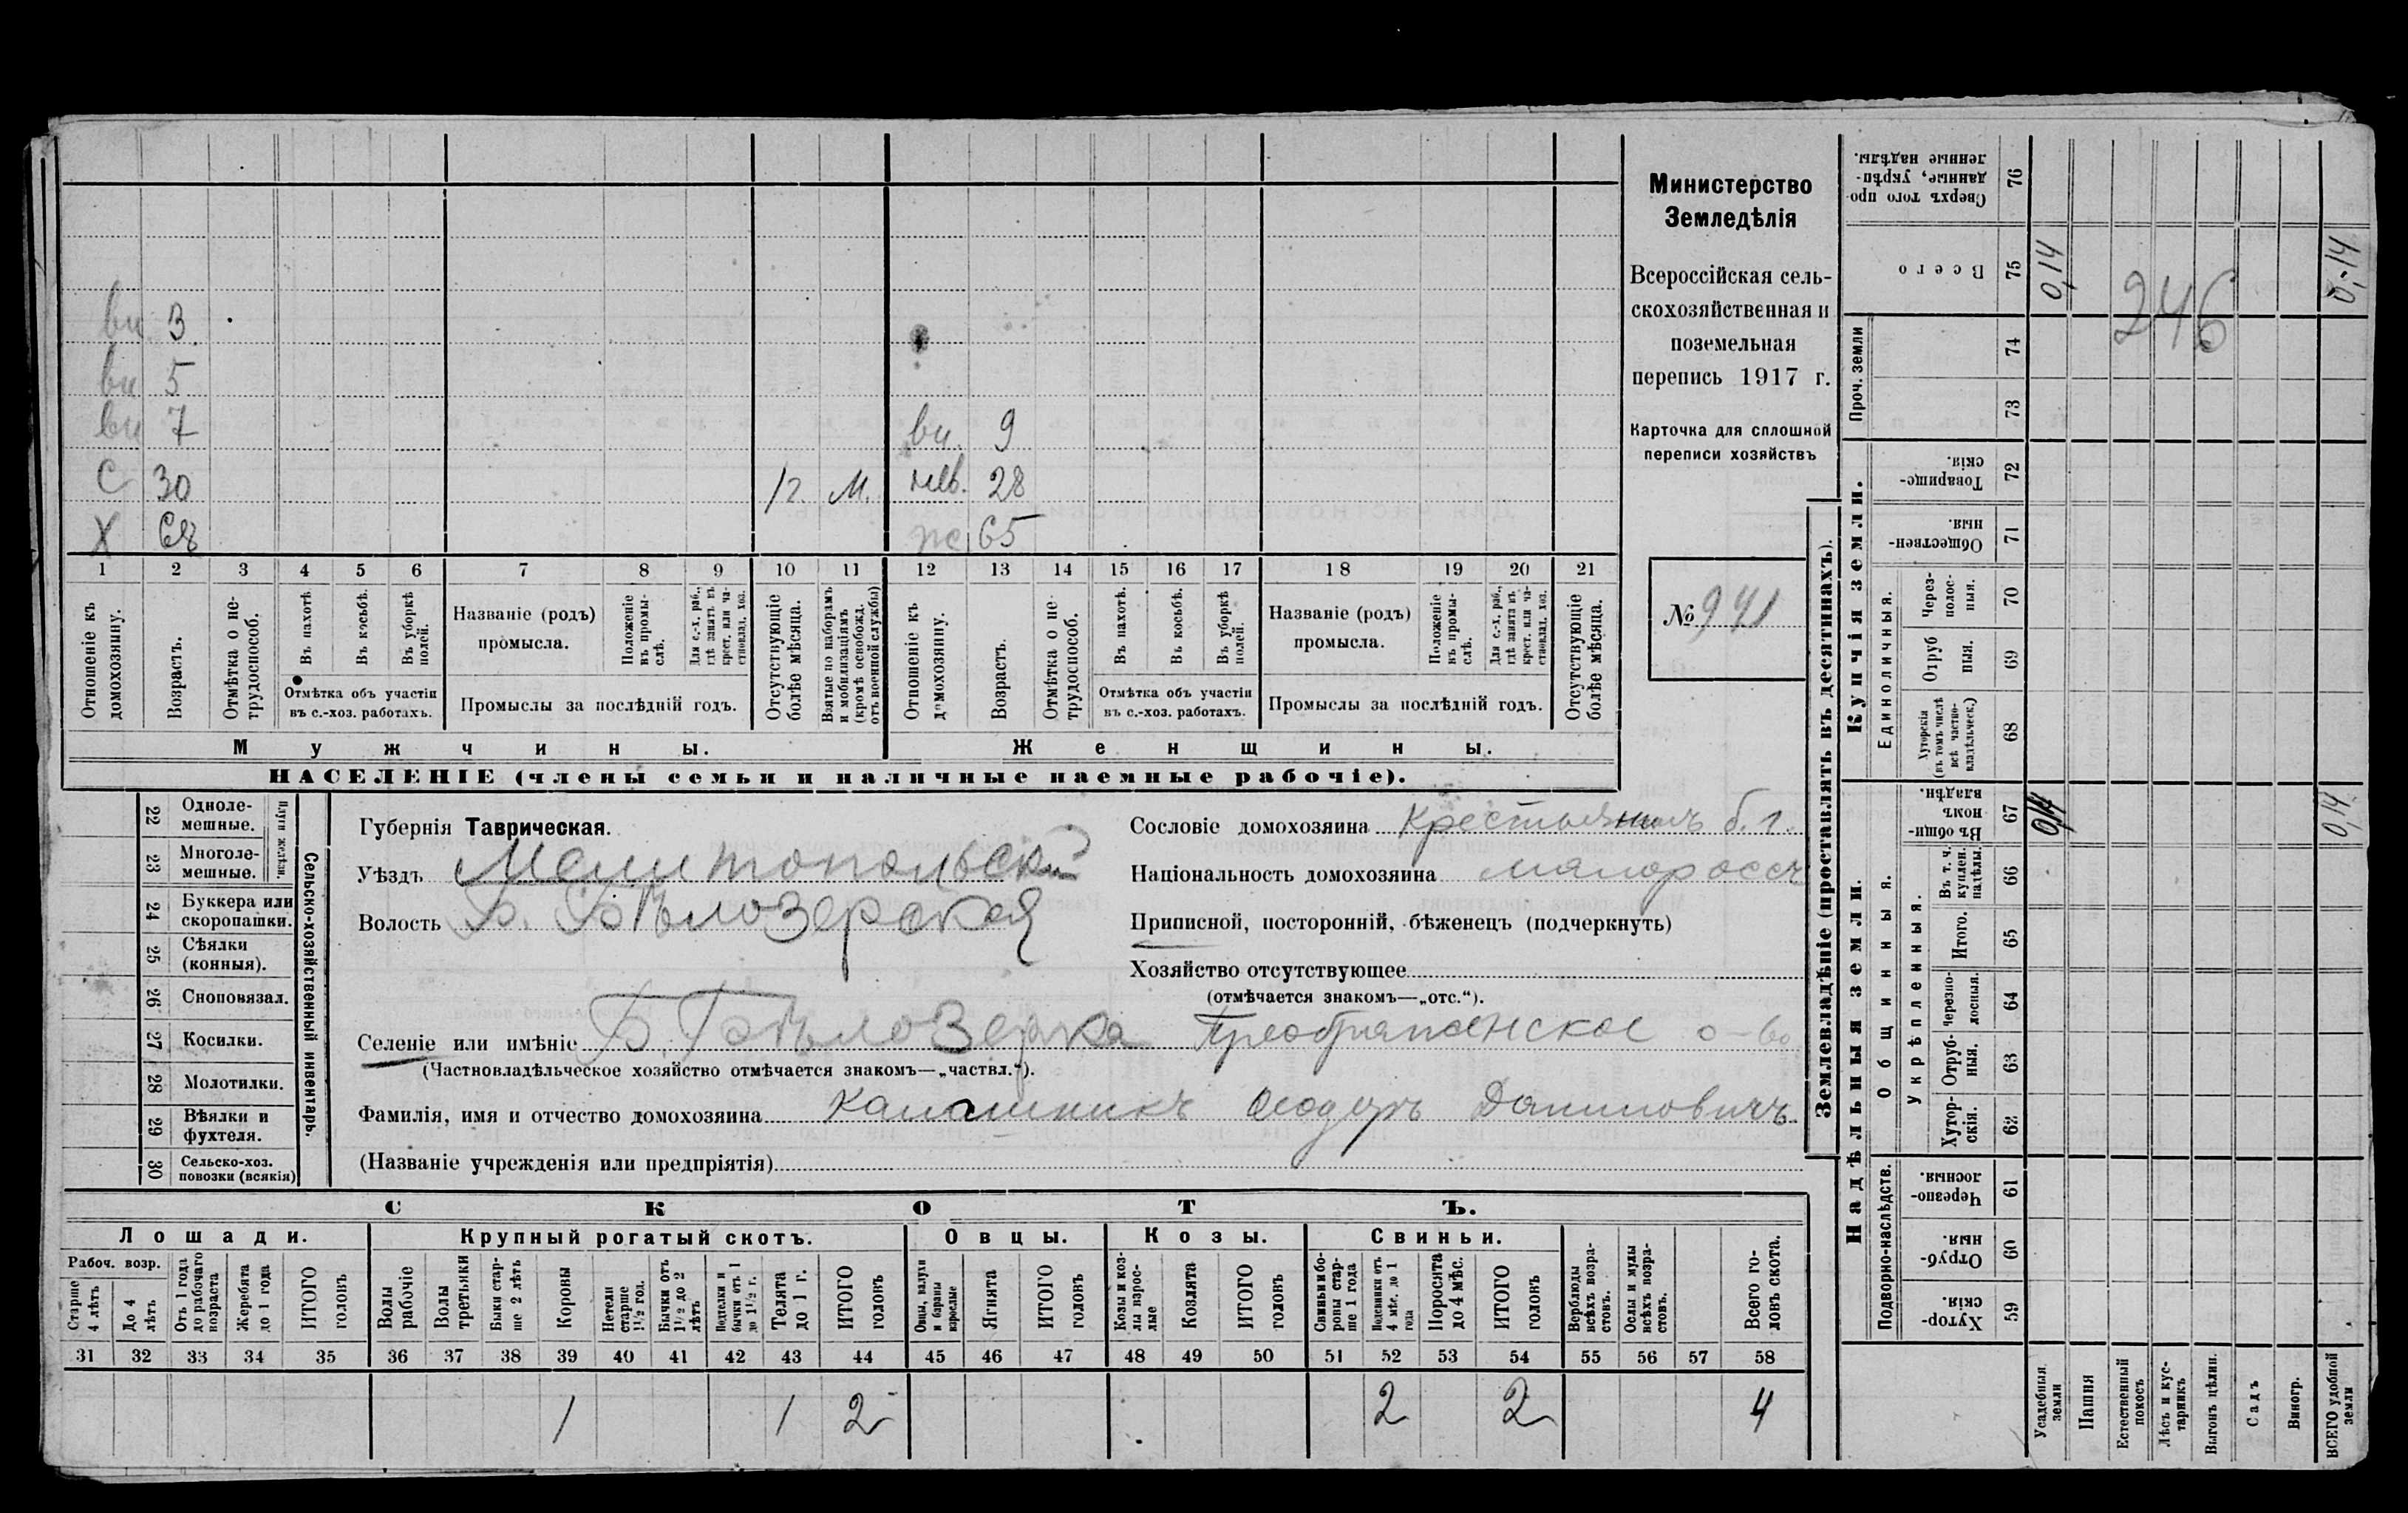 Министерство
Земледѣлія
Всероссійская сель-
скохозяйственная и
поземельная
перепись 1917 г.
Карточка для сплошной
переписи хозяйствъ
№ 941
вн 3
вн 5
вн 7 вн. 9
С 30 1 г. М. нев. 28
Х 68 ж 65
1 2 3 4 5 6 7 8 9 10 11 12 13 14 15 16 17 18 19 20 21
Отношеніе къ домохозяину.
Возрастъ.
Отмѣтка о не-трудоспособ.
Въ пахотѣ.
Въ косьбѣ.
Въ уборкѣ полей.
Отмѣтка объ участіи
въ с.-хоз. работахъ.
Названіе (родъ)
промысла.
Положеніе въ промы-слѣ.
Для с.-х. раб., гдѣ занятъ въ крест. или ча-стновлад. хоз.
Промыслы за послѣдній годъ.
Отсутствующіе болѣе мѣсяца.
Взятые по наборамъ и мобилизаціямъ (кромѣ освобожд. отъ военной службы)
Отношеніе къ домохозяину.
Возрастъ.
Отмѣтка о не-трудоспособ.
Въ пахотѣ.
Въ косьбѣ.
Въ уборкѣ полей.
Отмѣтка объ участіи
въ с.-хоз. работахъ.
Названіе (родъ)
промысла.
Положеніе въ промы-слѣ.
Для с.-х. раб., гдѣ занята въ крест. или ча-стновлад. хоз.
Промыслы за послѣдній годъ.
Отсутствующіе болѣе мѣсяца.
Мужчины. Женщины.
НАСЕЛЕНІЕ (члены семьи и наличные наемные рабочіе).
22 Одноле-мешные.
23 Многоле-мешные.
Плуги желѣзн.
24 Буккера или скоропашки.
25 Сѣялки (конныя).
26 Сноповязал.
27 Косилки.
28 Молотилки.
29 Вѣялки и фухтеля.
30 Сельско-хоз. повозки (всякія)
Сельско-хозяйственный инвентарь.
Губернія Таврическая.
Уѣздъ Мелитопольскій
Волость Б. Бѣлозерская
Сословіе домохозяина Крестьянинъ б. г.
Національность домохозяина малороссъ
Приписной, посторонній, бѣженецъ (подчеркнуть)
Хозяйство отсутствующее
(отмѣчается знакомъ—„отс.“).
Селеніе или имѣніе Б. Бѣлозерка Преображенское о-во
(Частновладѣльческое хозяйство отмѣчается знакомъ—„частвл.“).
Фамилія, имя и отчество домохозяина Калашникъ Ѳеодоръ Даниловичъ
(Названіе учрежденія или предпріятія)
СКОТЪ.
Лошади. Крупный рогатый скотъ. Овцы. Козы. Свиньи.
Рабоч. возр.
Старше 4 лѣтъ
До 4 лѣтъ
Отъ 1 года до рабочаго возраста
Жеребята до 1 года
ИТОГО головъ
Волы рабочіе
Волы третьяки
Быки стар-ше 2 лѣтъ
Коровы
Нетели старше 1½ год.
Бычки отъ 1½ до 2 лѣтъ
Подтелки и бычки отъ 1 до 1½ г.
Телята до 1 г.
ИТОГО головъ
Овцы, валухи и бараны взрослые
Ягнята
ИТОГО головъ
Козы и коз-лы взрос-лые
Козлята
ИТОГО головъ
Свиньи и бо-ровы стар-ше 1 года
Подсвинки отъ 4 мѣс. до 1 года
Поросята до 4 мѣс.
ИТОГО головъ
Верблюды всѣхъ возра-стовъ.
Ослы и мулы всѣхъ возра-стовъ.
Всего го-ловъ скота.
31 32 33 34 35 36 37 38 39 40 41 42 43 44 45 46 47 48 49 50 51 52 53 54 55 56 57 58
1 1 2 2 2 4
Землевладѣніе (проставлять въ десятинахъ).
Надѣльныя земли. Купчія земли. Проч. земли
Подворно-наслѣдств.
Общинныя.
Укрѣпленныя.
Единоличныя.
59 Хутор-скія.
60 Отруб-ныя.
61 Черезпо-лосныя.
62 Хутор-скія.
63 Отруб-ныя.
64 Черезпо-лосныя.
65 Итого.
66 Въ т. ч. куплен. надѣлы.
67 Въ общи-номъ владѣн.
68 Хуторскія (въ томъ числѣ всѣ частно-владѣльческ.)
69 Отруб ныя.
70 Через-полос-ныя.
71 Обществен-ныя.
72 Товарище-скія.
73
74
75 Всего
76 Сверхъ того про-данные, укрѣп-ленные надѣлы.
Усадебныя земли
Пашня
Естественный покосъ
Лѣсъ и кус-тарникъ
Выгонъ цѣлин.
Садъ
Виногр.
ВСЕГО удобной земли
0,14
246
0,14
0,14
0,14